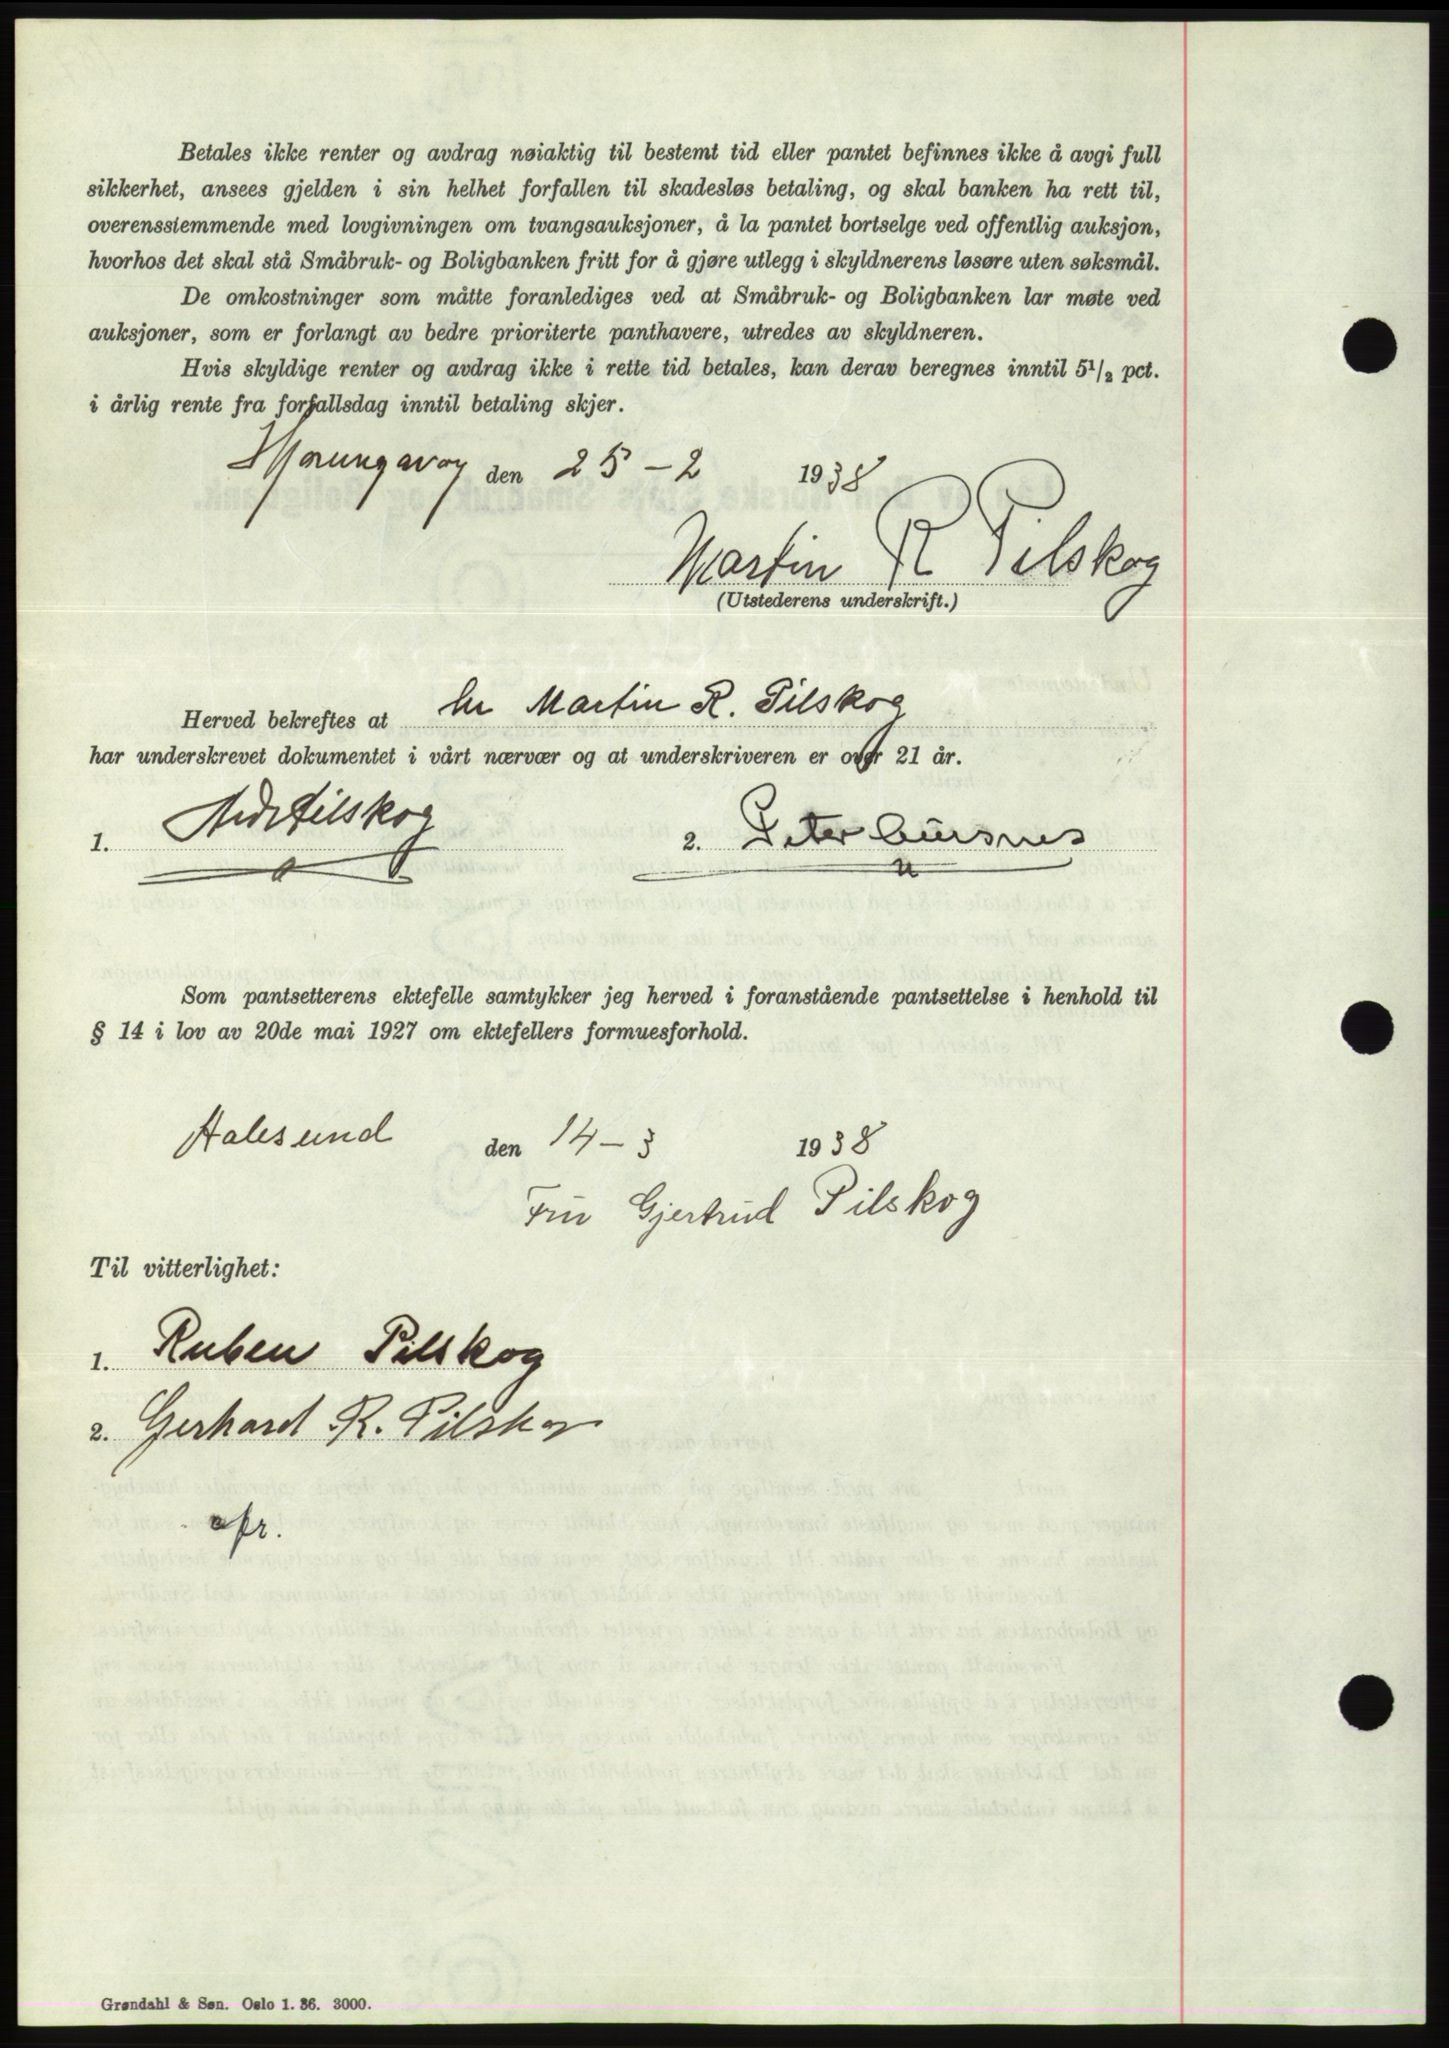 Betales ikke renter og avdrag nøiaktig til bestemt tid eller pantet befinnes ikke å avgi full
sikkerhet, ansees gjelden i sin helhet forfallen til skadesløs betaling, og skal banken ha rett til,
overensstemmende med lovgivningen om tvangsauksjoner, å la pantet bortselge ved offentlig auksjon,
hvorhos det skal stå Småbruk- og Boligbanken fritt for å gjøre utlegg i skyldnerens løsøre uten søksmål.
De omkostninger som måtte foranlediges ved at Småbruk- og Boligbanken lar møte ved
auksjoner, som er forlangt av bedre prioriterte panthavere, utredes av skyldneren.
Hvis skyldige renter og avdrag ikke i rette tid betales, kan derav beregnes inntil 5 1/2 pct.
i årlig rente fra forfallsdag inntil betaling skjer.
Hjørungavåg den 25-2 1938
Martin R Pilskog
(Utstederens underskrift.)
Herved bekreftes at hr Martin R. Pilskog
har underskrevet dokumentet i vårt nærvær og at underskriveren er over 21 år.
1. Pilskog 2. Peter
Som pantsetterens ektefelle samtykker jeg herved i foranstående pantsettelse i henhold til
§ 14 i lov av 20de mai 1927 om ektefellers formuesforhold.
Aalesund den 14-3 1938
Fru Gjertrud Pilskog
Til vitterlighet:
1. Ruben Pilskog
2. Gerhard R. Pilskog
Grøndahl & Søn. Oslo 1. 36. 3000.